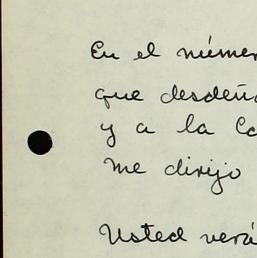 En el númer
que desdeñ
y a la Co
me dirijo
Usted verá